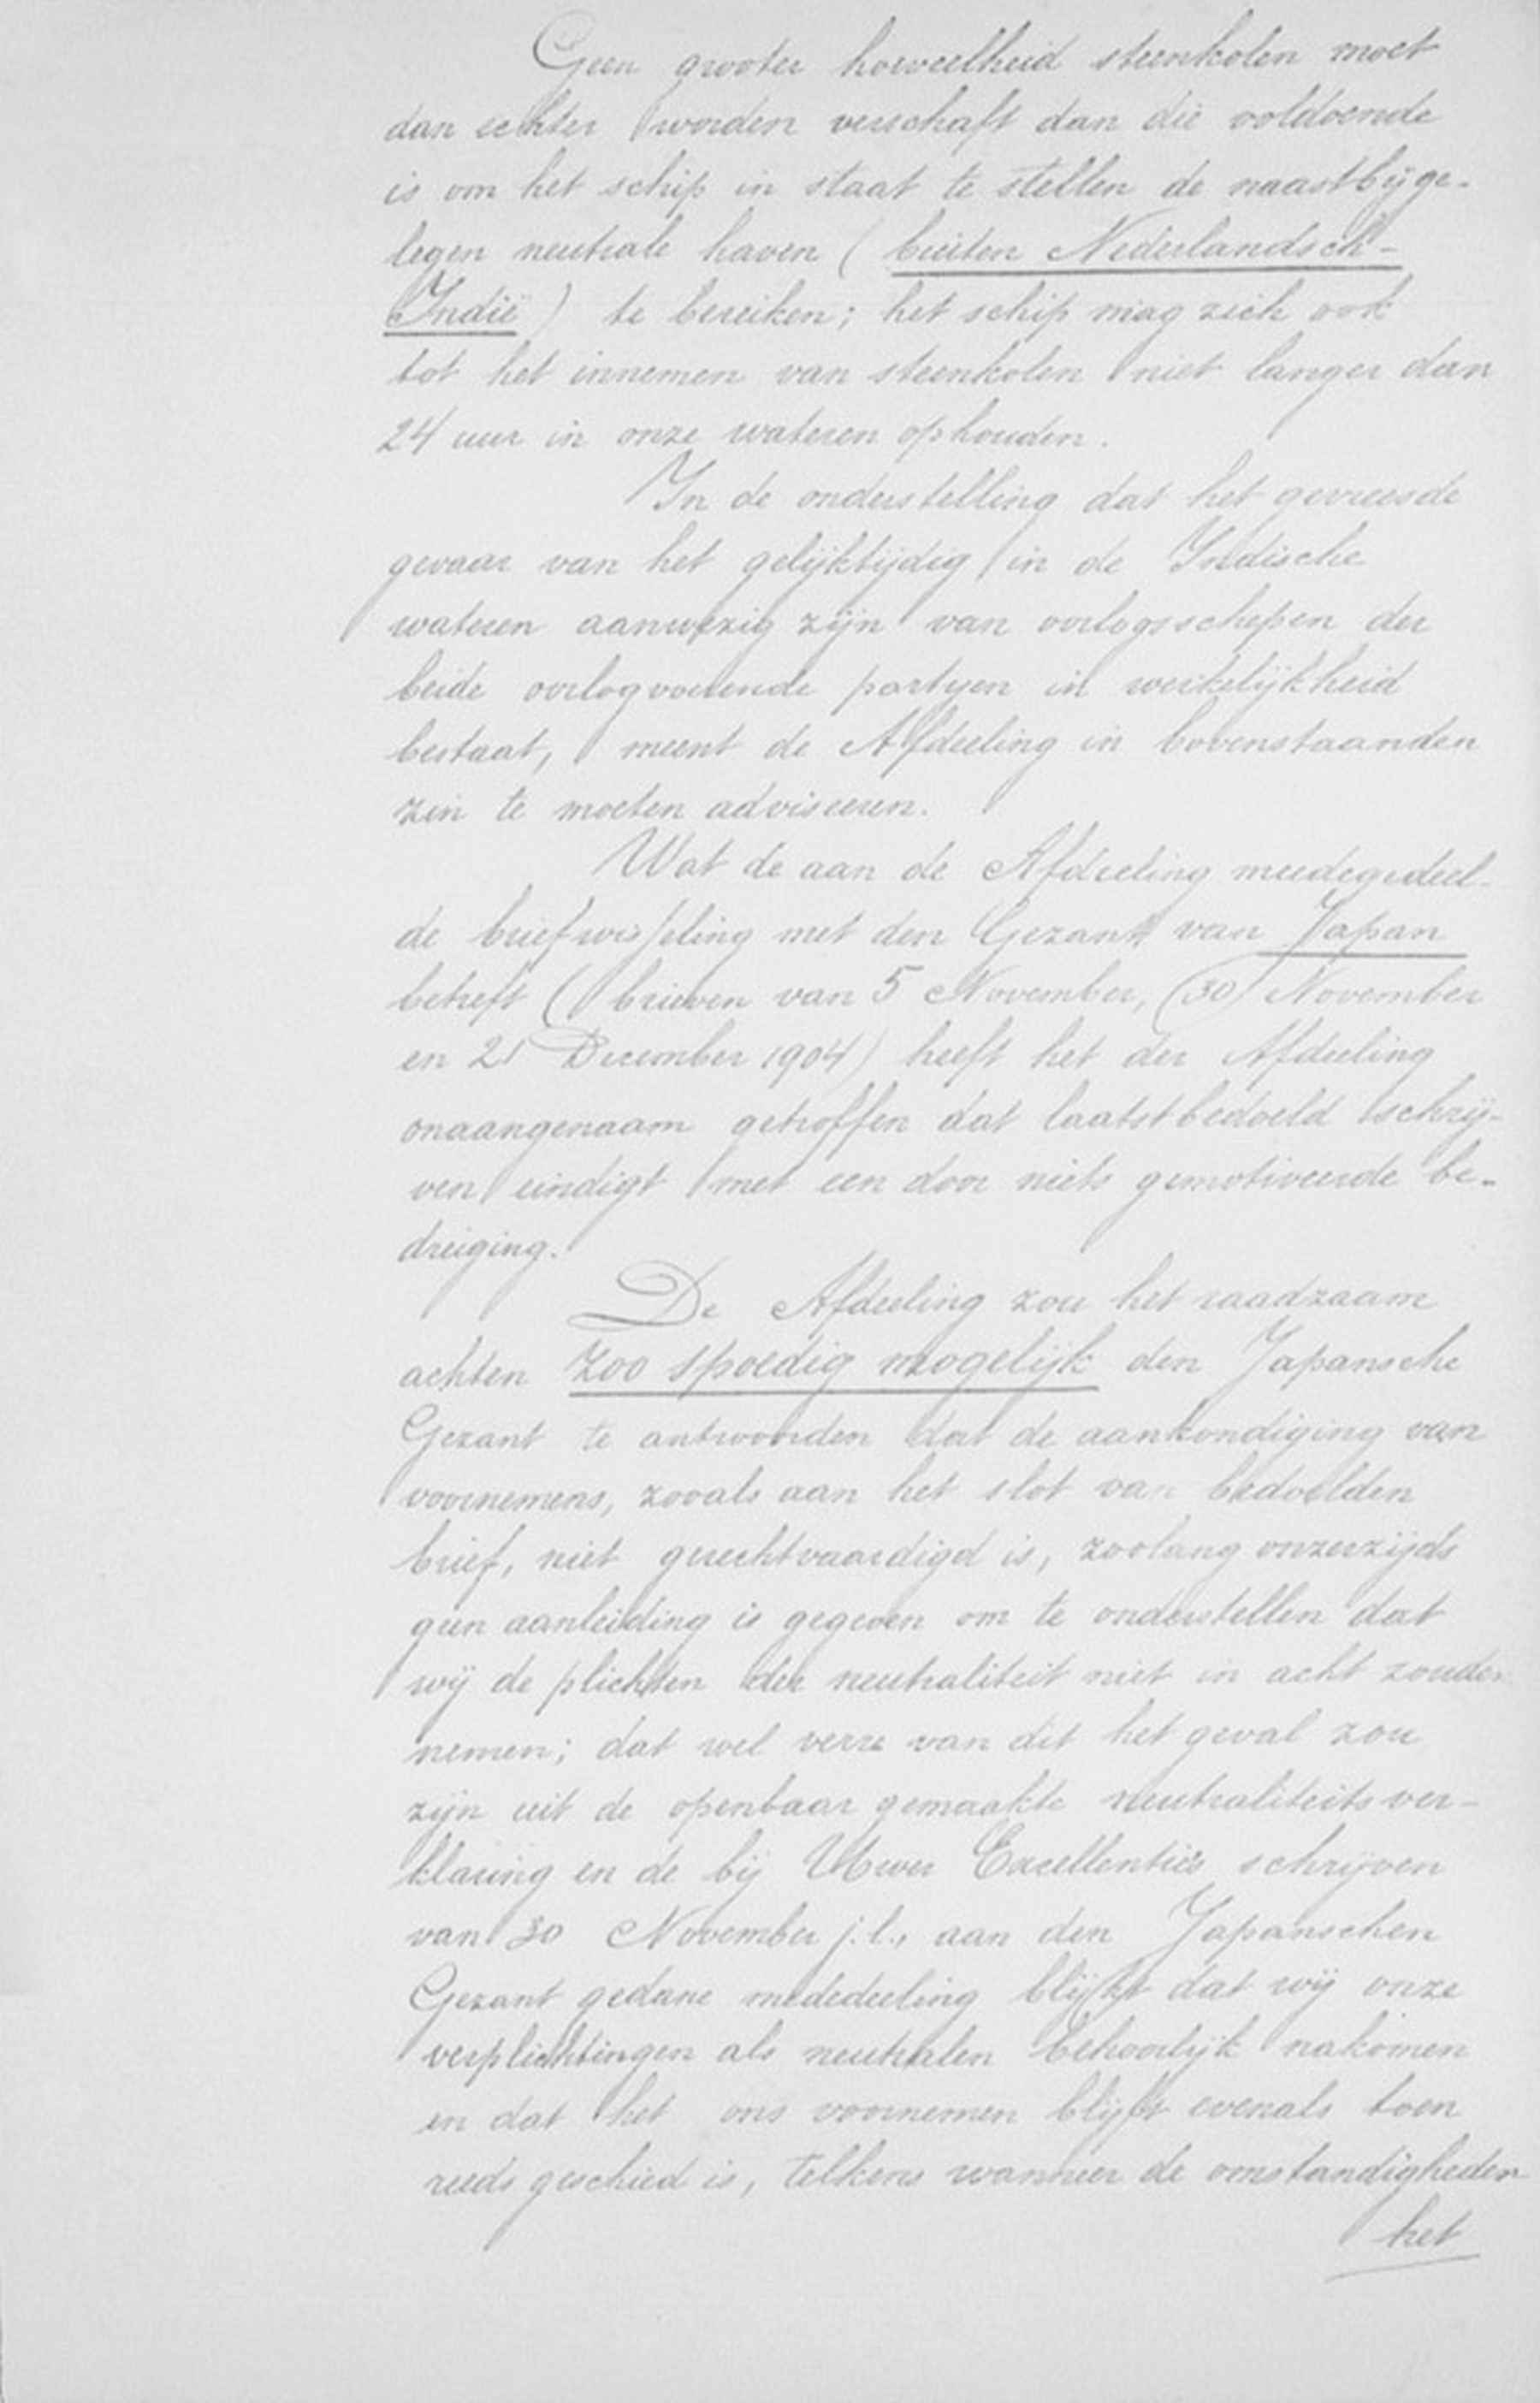 Geen grooter hoeveelheid steenkolen moet
dan echter worden verschaft dan die voldoende
is om het schip in staat te stellen de naastbijge-
legen neutrale haven (buiten Nederlandsch-
Indië) te bereiken; het schip mag zich ook
tot het innemen van steenkolen niet langer dan
24 uur in onze wateren ophouden.
In de onderstelling dat het gevreesde
gevaar van het gelijktijdig in de Indische
wateren aanwezig zijn van oorlogsschepen der
beide oorlogvoerende partijen in werkelijkheid
bestaat, meent de Afdeeling in bovenstaanden
zin te moeten adviseeren.
Wat de aan de Afdeeling meedegedeel-
de briefwisseling met den Gezant van Japan
betreft (brieven van 5 November, (30) November
en 21 December 1904) heeft het der Afdeeling
onaangenaam getroffen dat laatstbedoeld schrij-
ven eindigt met een door niets gemotiveerde be-
dreiging.
De Afdeeling zou het raadzaam
achten zoo spoedig mogelijk den Japansche
Gezant te antwoorden dat de aankondiging van
voornemens, zooals aan het slot van bedoelden
brief, niet gerechtvaardigd is, zoolang onzerzijds
geen aanleiding is gegeven om te onderstellen dat
wij de plichten der neutraliteit niet in acht zouden
nemen; dat wel verre van dit het geval zou
zijn uit de openbaar gemaakte neutraliteitsver-
klaring en de bij Uwer Excellentie's schrijven
van 30 November j.l., aan den Japanschen
Gezant gedane mededeeling blijkt dat wij onze
verplichtingen als neutralen behoorlijk nakomen
en dat het ons voornemen blijft evenals toen
reeds geschied is, telkens wanneer de omstandigheden
het